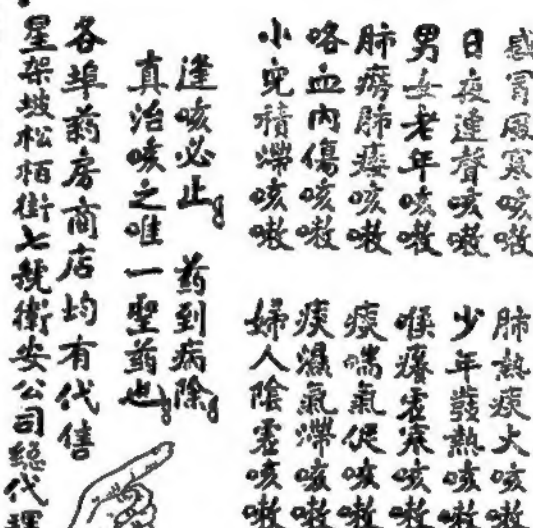 感冒風寒咳嗽
日夜連聲咳嗽
男女老年咳嗽
肺癆肺痿咳嗽
咯血內傷咳嗽
小兒積滯咳嗽
肺熱痰火咳嗽
少年發熱咳嗽
喉癢虛寒咳嗽
痰喘氣促咳嗽
痰濕氣滯咳嗽
婦人陰虛咳嗽
逢咳必止。葯到病除。
真治咳之唯一聖葯也。
各埠葯房商店均有代售
星架坡松栢街七號衛安公司總代理